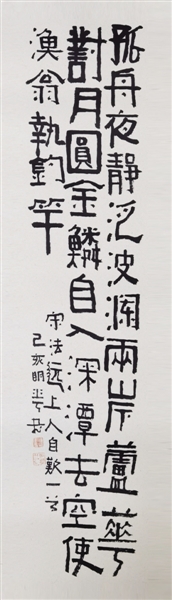 孤舟夜靜泛波瀾兩岸蘆華
對月圓金鱗自入深潭去空使
漁翁執釣竿
宋法远上人自歎一首
己亥明